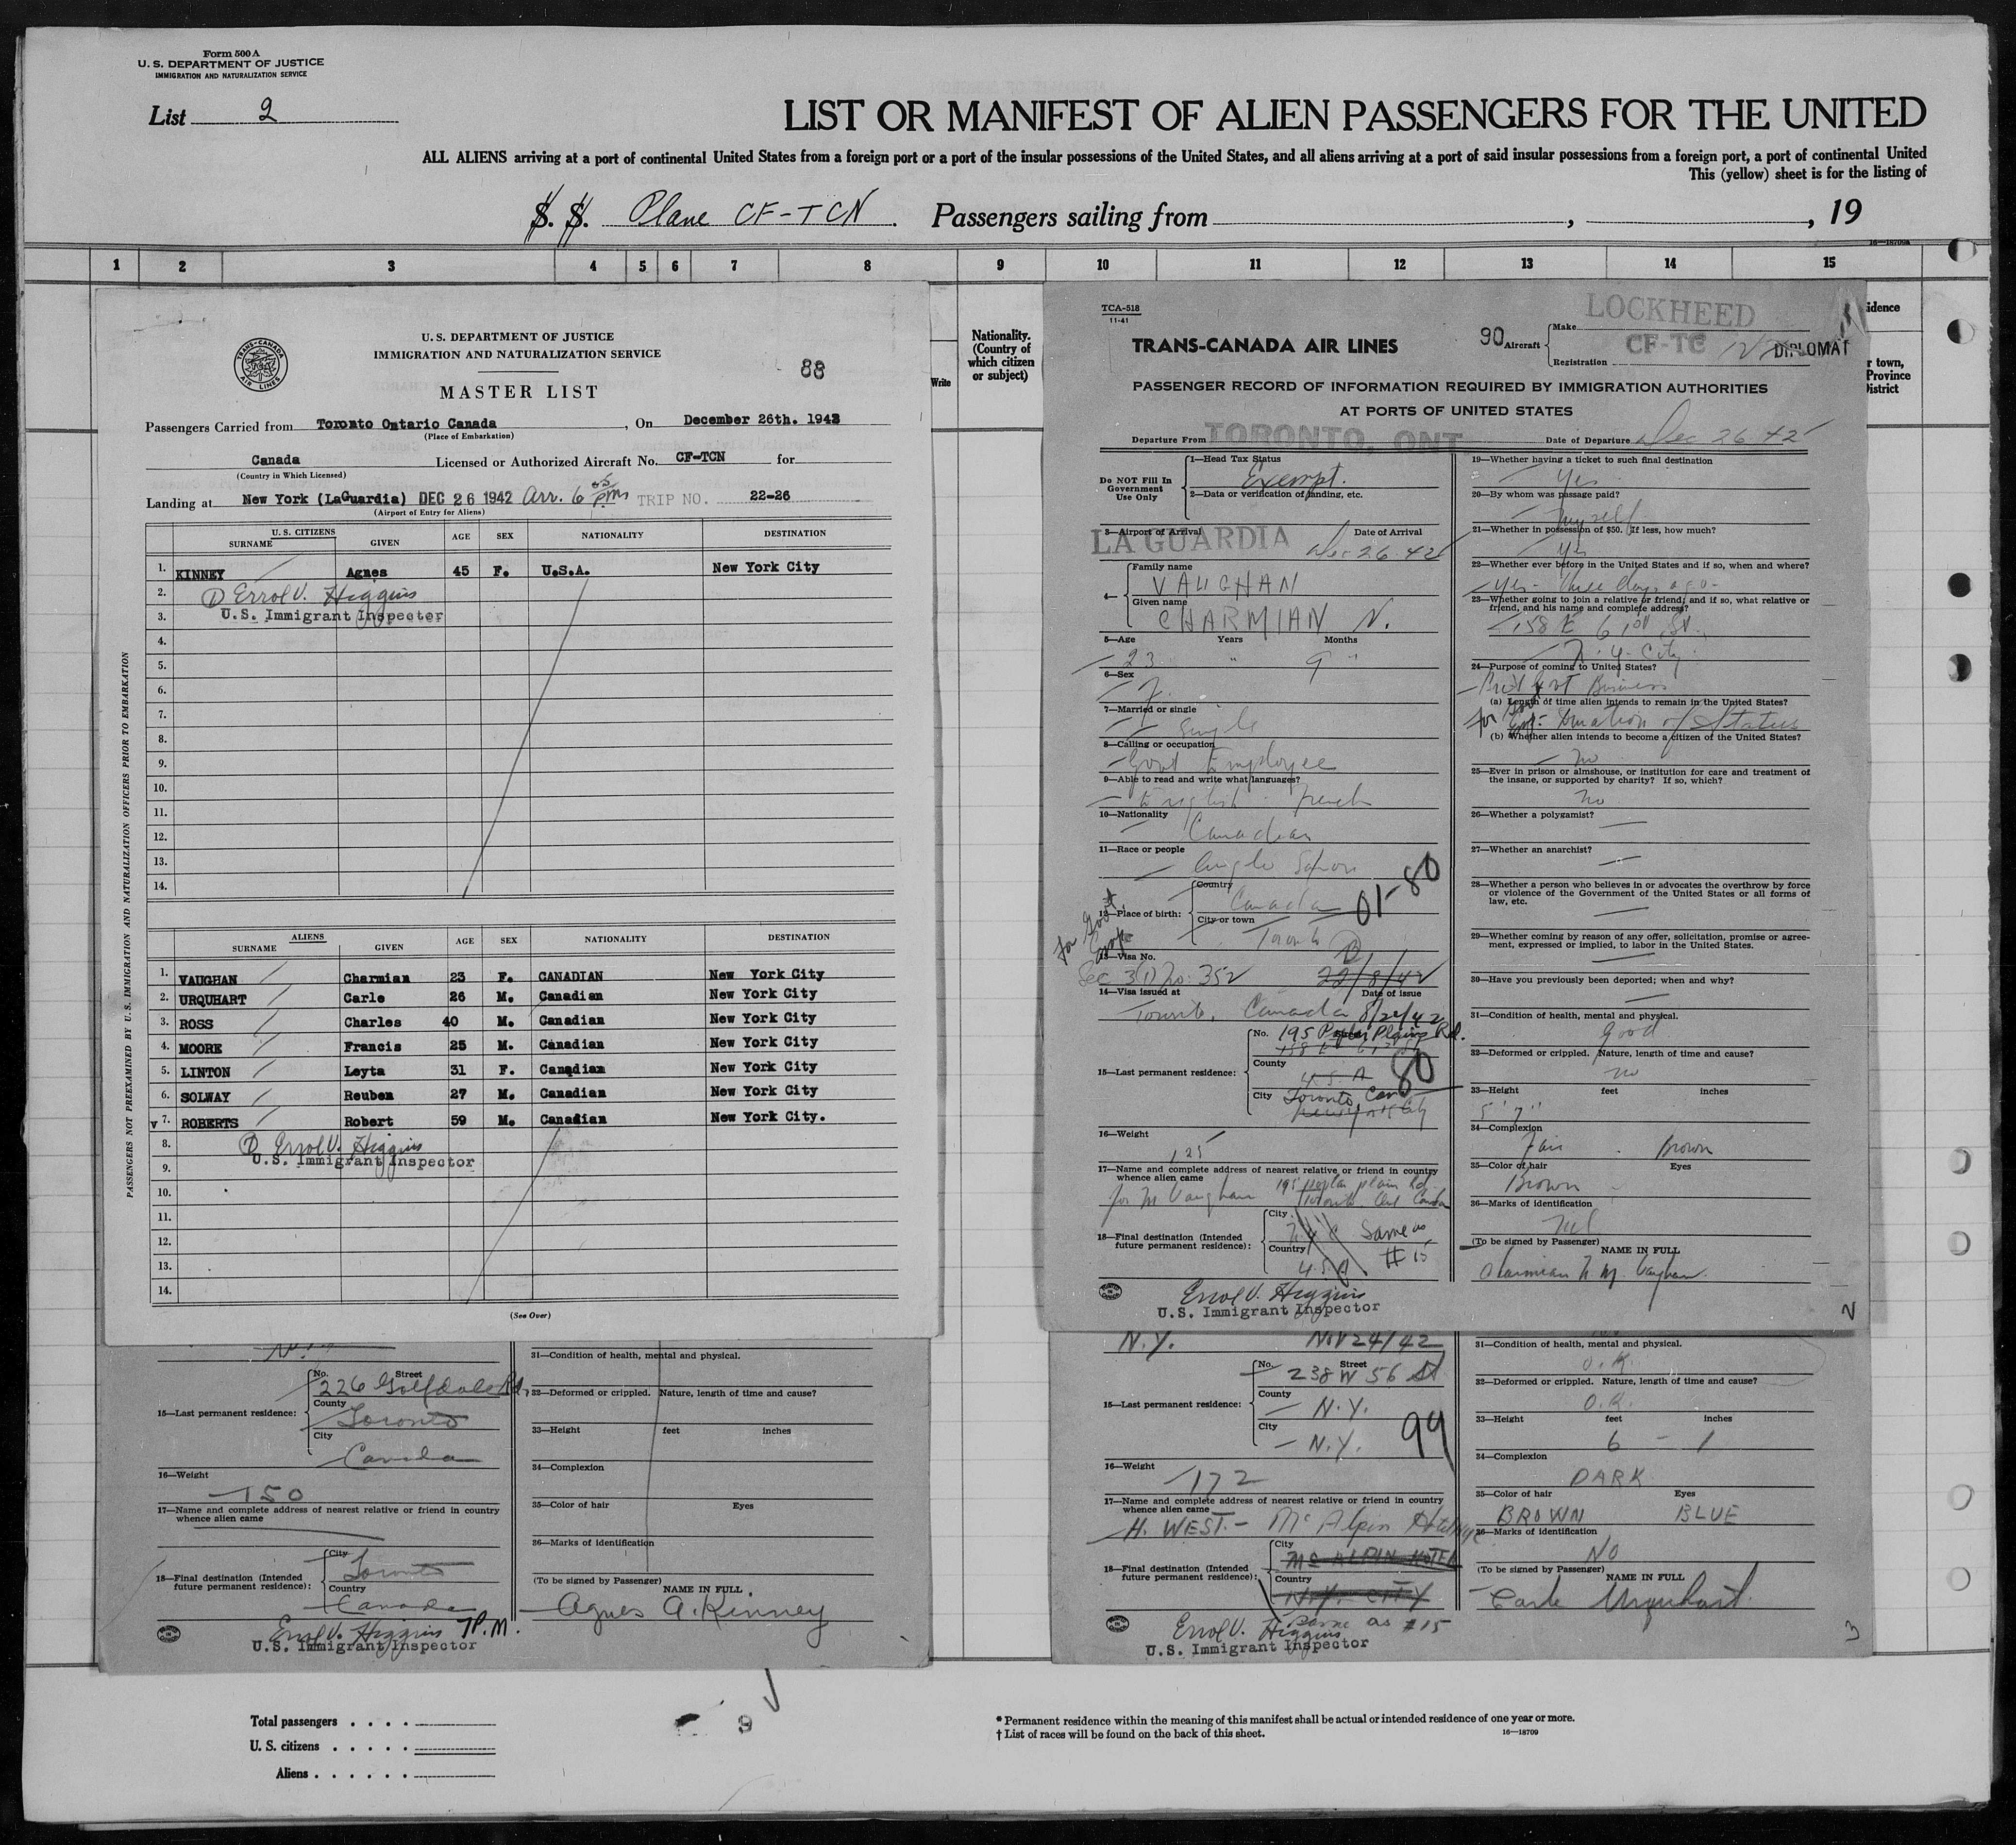 Form 500 A
U. S. DEPARTMENT OF JUSTICE
IMMIGRATION AND NATURALIZATION SERVICE
List 2
LIST OR MANIFEST OF ALIEN PASSENGERS FOR THE UNITED
ALL ALIENS arriving at a port of continental United States from a foreign port or a port of the insular possessions of the United States, and all aliens arriving at a port of said insular possessions from a foreign port, a port of continental United
This (yellow) sheet is for the listing of
S. S. Plane CF-TCN Passengers sailing from , , 19
16—18709a
1 2 3 4 5 6 7 8 9 10 11 12 13 14 15
Nationality.
(Country of
which citizen
or subject)
Write
idence
r town,
Province
District
TRANS-CANADA AIR LINES
U. S. DEPARTMENT OF JUSTICE
IMMIGRATION AND NATURALIZATION SERVICE
88
MASTER LIST
Passengers Carried from Toronto Ontario Canada , On December 26th. 1942
(Place of Embarkation)
Canada Licensed or Authorized Aircraft No. CF-TCN for
(Country in Which Licensed)
Landing at New York (LaGuardia) DEC 26 1942 Arr. 6 05 pm TRIP NO. 22-26
(Airport of Entry for Aliens)
U. S. CITIZENS
SURNAME GIVEN AGE SEX NATIONALITY DESTINATION
1. KINNEY Agnes 45 F. U.S.A. New York City
2. Errol V. Higgins
3. U.S. Immigrant Inspector
4.
5.
6.
7.
8.
9.
10.
11.
12.
13.
14.
ALIENS
SURNAME GIVEN AGE SEX NATIONALITY DESTINATION
1. VAUGHAN Charmian 23 F. CANADIAN New York City
2. URQUHART Carle 26 M. Canadian New York City
3. ROSS Charles 40 M. Canadian New York City
4. MOORE Francis 25 M. Canadian New York City
5. LINTON Leyta 31 F. Canadian New York City
6. SOLWAY Reuben 27 M. Canadian New York City
v 7. ROBERTS Robert 59 M. Canadian New York City.
8. Errol V. Higgins
9. U.S. Immigrant Inspector
10.
11.
12.
13.
14.
(See Over)
PASSENGERS NOT PREEXAMINED BY U. S. IMMIGRATION AND NATURALIZATION OFFICERS PRIOR TO EMBARKATION
15—Last permanent residence:
No. Street
226 Golfdale Rd.
County
Toronto
City
Canada
16—Weight
150
17—Name and complete address of nearest relative or friend in country
whence alien came
18—Final destination (Intended
future permanent residence):
City
Toronto
Country
Canada
Errol V. Higgins T.P.M.
U.S. Immigrant Inspector
31—Condition of health, mental and physical.
32—Deformed or crippled. Nature, length of time and cause?
33—Height feet inches
34—Complexion
35—Color of hair Eyes
36—Marks of identification
(To be signed by Passenger)
NAME IN FULL
Agnes A. Kinney
TCA-518
11-41
LOCKHEED
TRANS-CANADA AIR LINES
90 Aircraft
Make
Registration CF-TC N
DIPLOMAT
PASSENGER RECORD OF INFORMATION REQUIRED BY IMMIGRATION AUTHORITIES
AT PORTS OF UNITED STATES
Departure From TORONTO, ONT Date of Departure Dec 26 42
Do NOT Fill In
Government
Use Only
1—Head Tax Status
Exempt.
2—Data or verification of landing, etc.
3—Airport of Arrival Date of Arrival
LA GUARDIA Dec 26 42
4—
Family name
VAUGHAN
Given name
CHARMIAN N.
5—Age Years Months
23 " 9 "
6—Sex
F.
7—Married or single
Single
8—Calling or occupation
Govt Employee
9—Able to read and write what languages?
English - French
10—Nationality
Canadian
11—Race or people
Anglo Saxon
12—Place of birth:
Country
Canada
City or town
Toronto
01-80
for Govt.
13—Visa No.
Sec 3(1) No. 352 22/8/42
14—Visa issued at Date of issue
Toronto, Canada 8/22/42
15—Last permanent residence:
No. 195 Poplar Plains Rd.
158 E 61st St
County
U.S.A
80
City Toronto, Can
New York City
16—Weight
125
17—Name and complete address of nearest relative or friend in country
whence alien came
M Vaughan 195 poplar plain Rd
Toronto Ont Canada
18—Final destination (Intended
future permanent residence):
City
N.Y.C Same as
Country # 15
U.S.A
Errol V. Higgins
U.S. Immigrant Inspector
19—Whether having a ticket to such final destination
Yes
20—By whom was passage paid?
Myself
21—Whether in possession of $50. If less, how much?
Yes
22—Whether ever before in the United States and if so, when and where?
Yes - three days ago -
23—Whether going to join a relative or friend; and if so, what relative or
friend, and his name and complete address?
158 E 61st St.
N.Y. City
24—Purpose of coming to United States?
Brit Govt Business
(a) Length of time alien intends to remain in the United States?
for Govt duration of status
(b) Whether alien intends to become a citizen of the United States?
No
25—Ever in prison or almshouse, or institution for care and treatment of
the insane, or supported by charity? If so, which?
no
26—Whether a polygamist?
27—Whether an anarchist?
28—Whether a person who believes in or advocates the overthrow by force
or violence of the Government of the United States or all forms of
law, etc.
29—Whether coming by reason of any offer, solicitation, promise or agree-
ment, expressed or implied, to labor in the United States.
30—Have you previously been deported; when and why?
31—Condition of health, mental and physical.
good
32—Deformed or crippled. Nature, length of time and cause?
no
33—Height feet inches
5' 7"
34—Complexion
Fair - Brown
35—Color of hair Eyes
Brown
36—Marks of identification
Nil
(To be signed by Passenger)
NAME IN FULL
Charmian N. M. Vaughan.
2
N.Y. Nov 24/42
15—Last permanent residence:
No. Street
238 W 56 St
County
N.Y.
City
N.Y.
99
16—Weight
172
17—Name and complete address of nearest relative or friend in country
whence alien came
H. WEST - McAlpin Hotel NYC
18—Final destination (Intended
future permanent residence):
City
Mc ALPIN HOTEL
Country
N.Y. CITY
Same as #15
Errol V. Higgins
U.S. Immigrant Inspector
31—Condition of health, mental and physical.
O.K.
32—Deformed or crippled. Nature, length of time and cause?
O.K.
33—Height feet inches
6 - 1
34—Complexion
DARK
35—Color of hair Eyes
BROWN BLUE
36—Marks of identification
NO
(To be signed by Passenger)
NAME IN FULL
Carle Urquhart
3
Total passengers . . . .
U. S. citizens . . . . .
Aliens . . . . . .
9
* Permanent residence within the meaning of this manifest shall be actual or intended residence of one year or more.
† List of races will be found on the back of this sheet.
16—18709